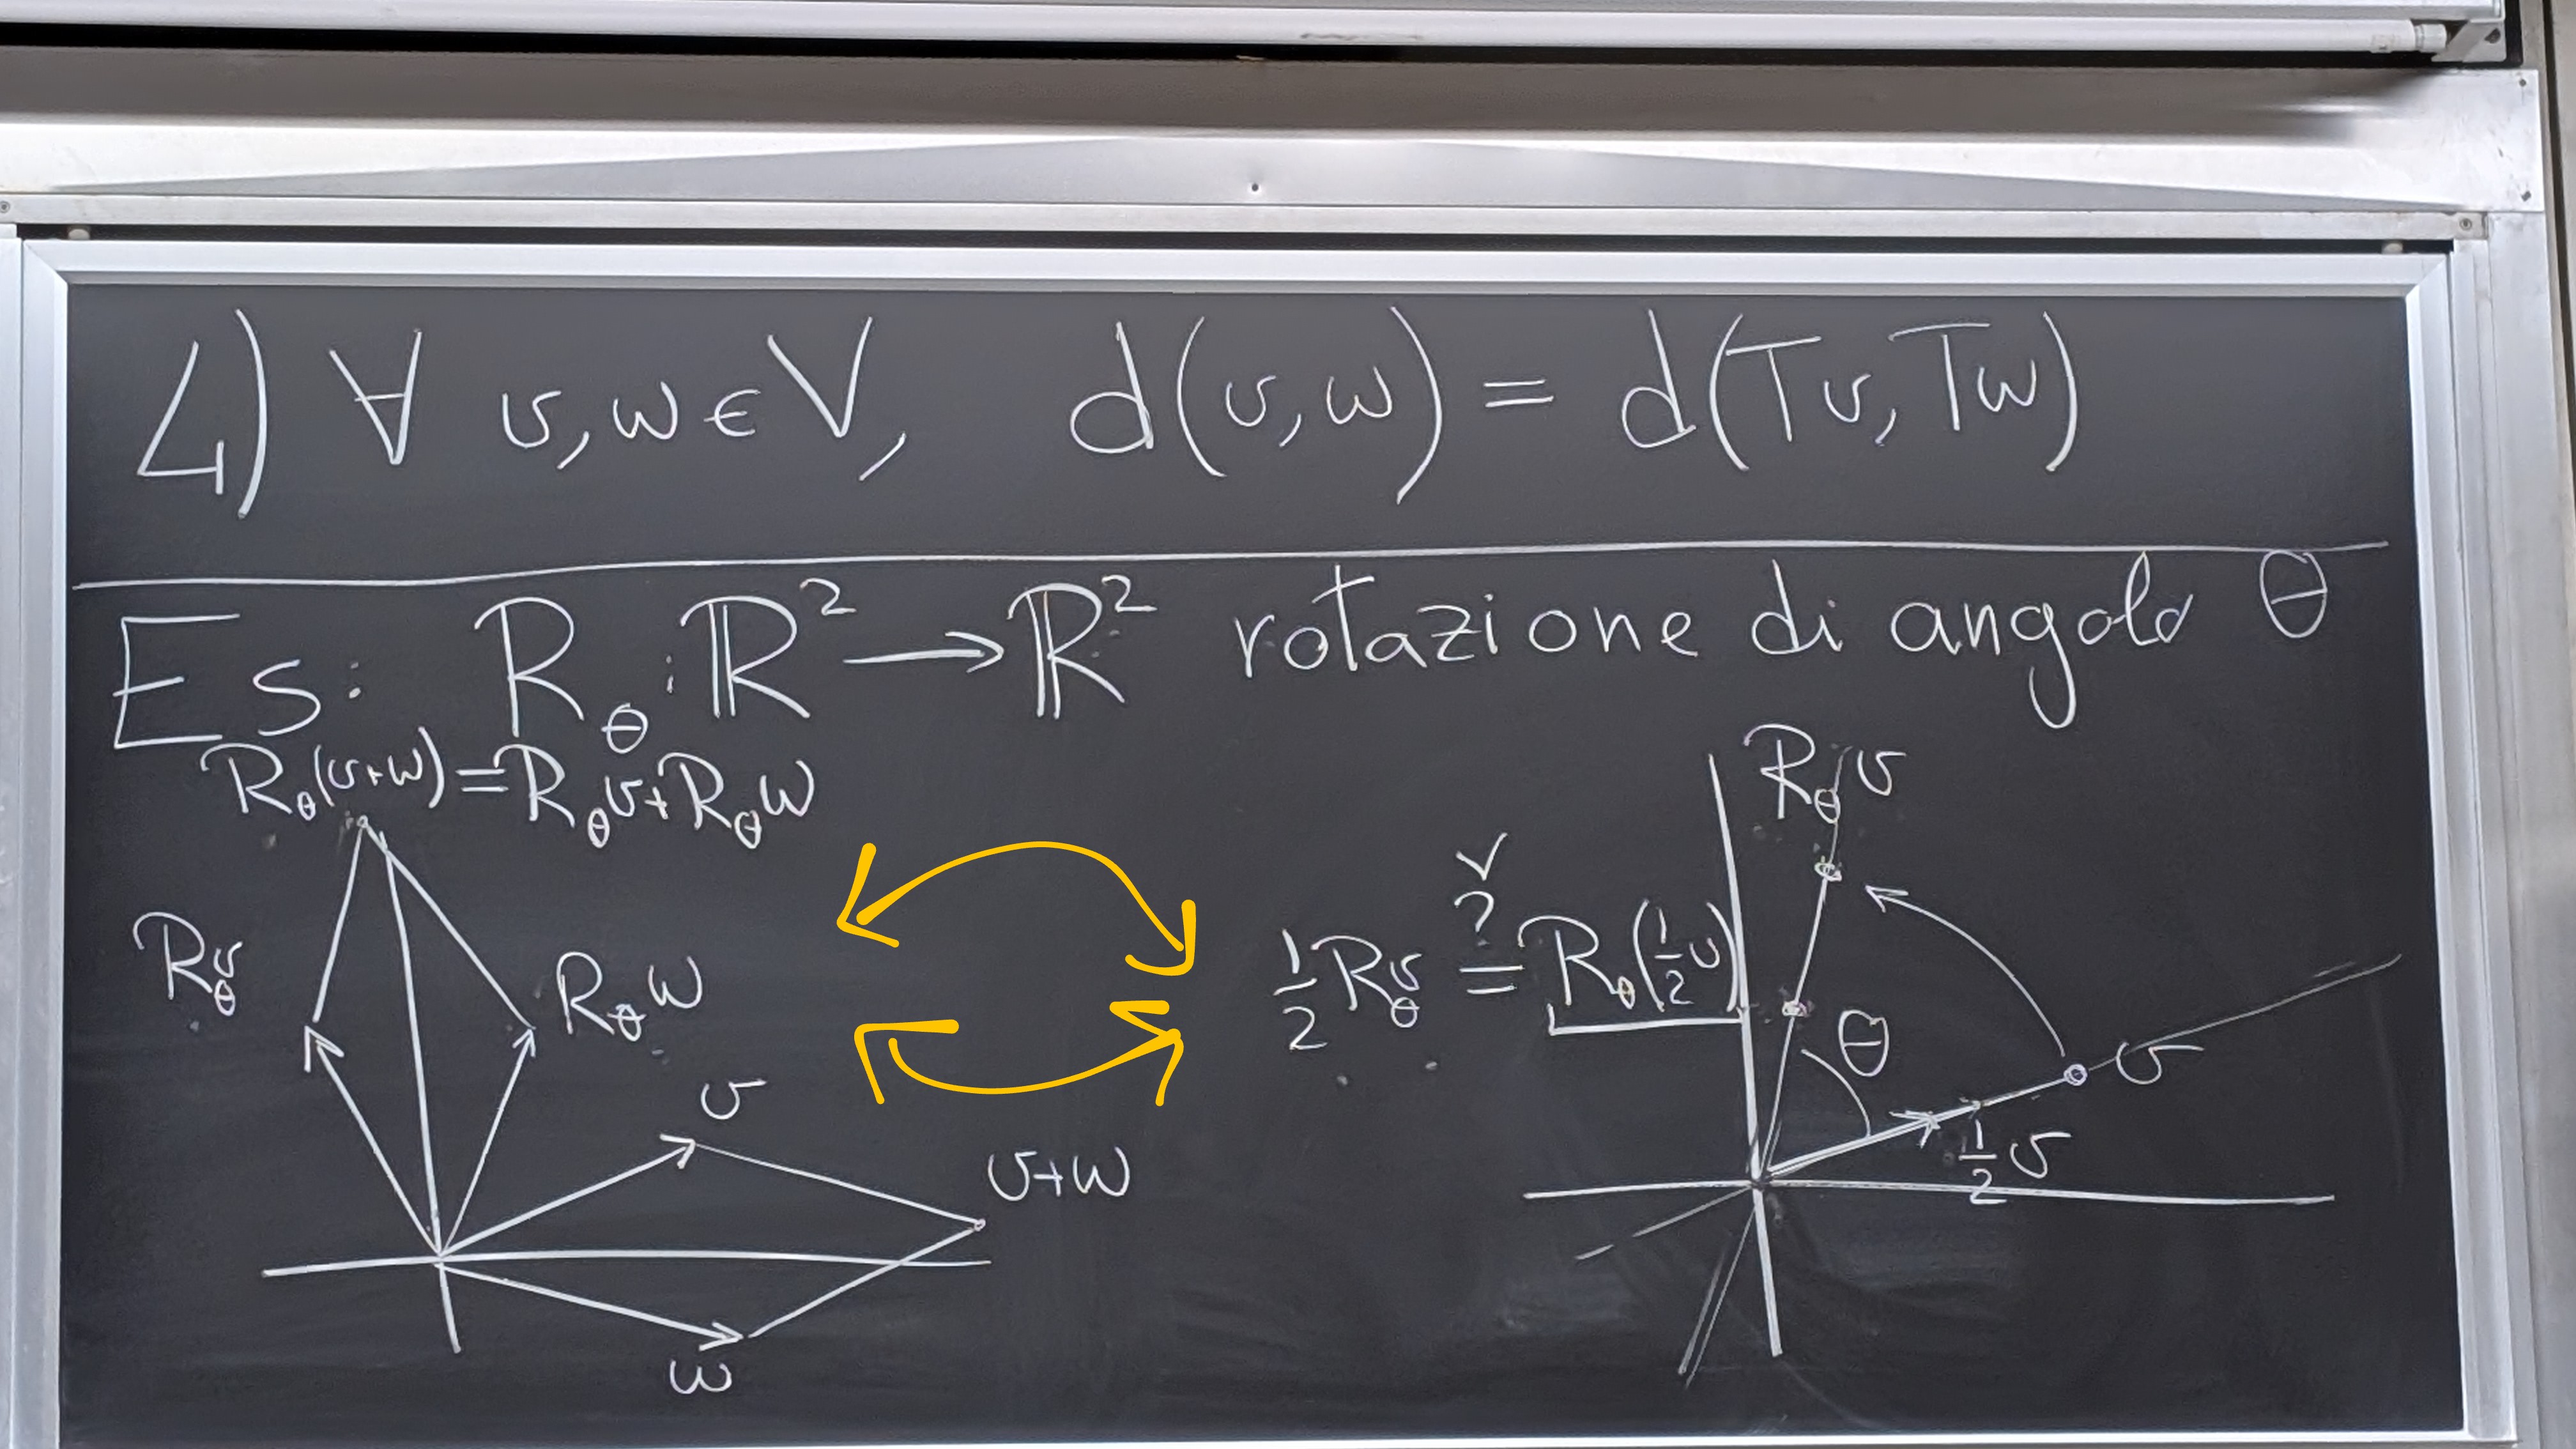 4) ∀ v, w ∈ V, d(v, w) = d(Tv, Tw)
Es: R_θ : ℝ² → ℝ² rotazione di angolo θ
R_θ(v+w) = R_θ v + R_θ w
R_θ v
R_θ w
v
v+w
w
R_θ v
✓
?
½ R_θ v = R_θ(½ v)
θ
v
½ v